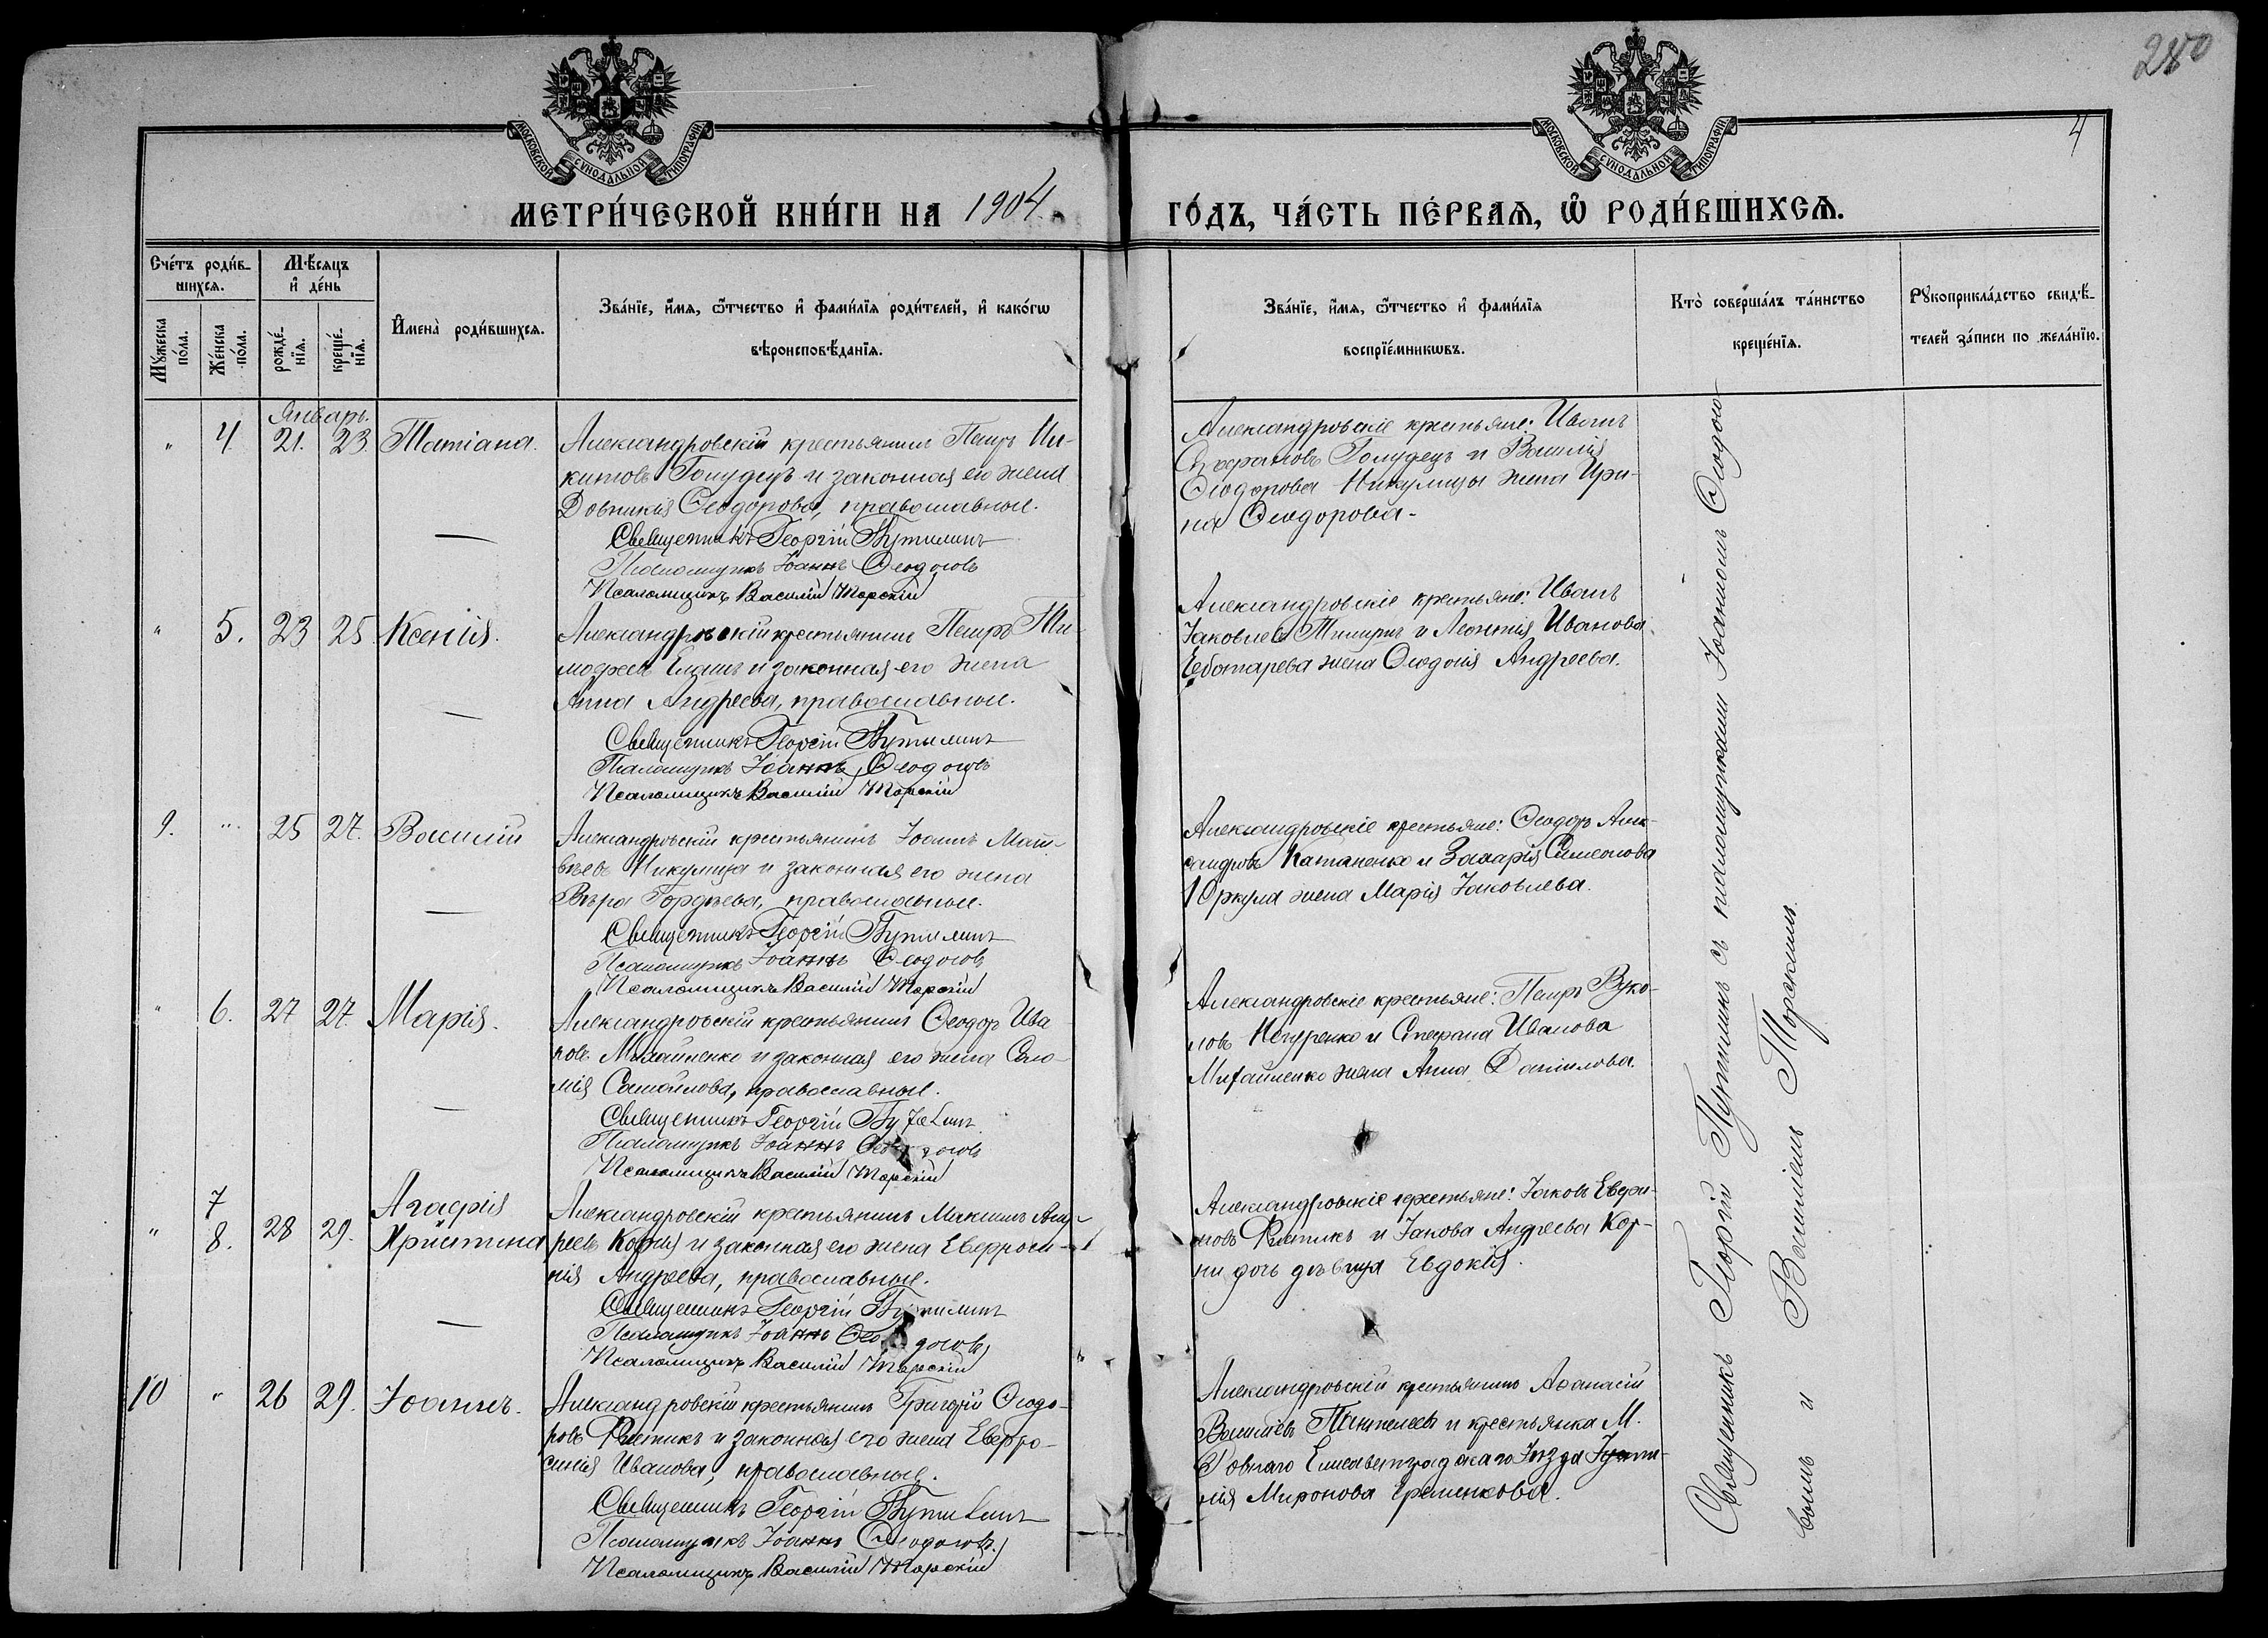 280
4
МОСКОВСКОЙ СѴНОДАЛЬНОЙ ТИПОГРАФІИ.
МОСКОВСКОЙ СѴНОДАЛЬНОЙ ТИПОГРАФІИ.
МЕТРИ́ЧЕСКОЙ КНИ́ГИ НА 1904.
ГО́ДЪ, ЧА́СТЬ ПЕ́РВАЯ, Ѡ҆ РОДИ́ВШИХСЯ.
Сче́тъ роди́в-
шихся.
Мѣ́сяцъ
и҆ де́нь
Мꙋ́жеска
по́ла.
Же́нска
по́ла.
рожде́-
нїя.
креще́-
нїя.
И҆мена̀ роди́вшихся.
Зва́нїе, и҆́мя, ѻ҆́тчество и҆ фами́лїя роди́телей, и҆ како́гѡ
вѣроисповѣ́данїя.
Зва́нїе, и҆́мя, ѻ҆́тчество и҆ фами́лїя
воспрїе́мникѡвъ.
Кто̀ соверша́лъ та́инство
креще́нїя.
Рꙋкоприкла́дство свидѣ́-
телей за́писи по жела́нїю.
Январь.
" 4. 21. 23. Татіана.
Александровскій крестьянинъ Петръ Ни-
китовъ Голудецъ и законная его жена
Ѳеодорова, православные.
Священникъ Георгій Путилинъ
Псаломщикъ Іоаннъ Ѳеодосовъ
Псаломщикъ Василій Торскій
Александровскіе крестьяне: Иванъ
Голудецъ и Василія
Ѳеодорова Никулицы жена Ири-
на Ѳеодорова.
" 5. 23 25 Ксенія.
Александровскій крестьянинъ Петръ Ти-
моѳеевъ и законная его жена
Анна Андреева, православные.
Священникъ Георгій Путилинъ
Псаломщикъ Іоаннъ Ѳеодосовъ
Псаломщикъ Василій Торскій
Александровскіе крестьяне: Иванъ
Іаковлевъ и Леонтія Иванова
Чеботарева жена Ѳеодосія Андреева.
9. " 25 27. Василій
Александровскій крестьянинъ Іоаннъ Мат-
вѣевъ Никулица и законная его жена
Вѣра Гордѣева, православные.
Священникъ Георгій Путилинъ
Псаломщикъ Іоаннъ Ѳеодосовъ
Псаломщикъ Василій Торскій
Александровскіе крестьяне: Ѳеодоръ Алек-
сандровъ Катаненко и Захарія Симеонова
Юркула жена Марія Іаковлева.
" 6. 27 27. Марія.
Александровскій крестьянинъ Ѳеодоръ Ива-
новъ Михайленко и законная его жена Соло-
мія Самойлова, православные.
Священникъ Георгій Путилинъ
Псаломщикъ Іоаннъ Ѳеодосовъ
Псаломщикъ Василій Торскій
Александровскіе крестьяне: Петръ Вуко-
ловъ и Стефана Иванова
Михайленко жена Анна Даніилова.
" 7 8. 28 29. Агафія
Христина
Александровскій крестьянинъ Максимъ Анд-
реевъ Корня и законная его жена Евфроси-
нія Андреева, православные.
Священникъ Георгій Путилинъ
Псаломщикъ Іоаннъ Ѳеодосовъ
Псаломщикъ Василій Торскій
Александровскіе крестьяне: Іаковъ
и Іакова Андреева Кор-
ни дочь дѣвица Евдокія.
10 " 26 29. Іоаннъ.
Александровскій крестьянинъ Григорій Ѳеодо-
ровъ и законная его жена Евфро-
синія Иванова, православные.
Священникъ Георгій Путилинъ
Псаломщикъ Іоаннъ Ѳеодосовъ
Псаломщикъ Василій Торскій
Александровскій крестьянинъ Аѳанасій
Василіевъ Пантелеевъ и крестьянка М.
Ровнаго Елисаветградскаго уѣзда
Миронова Еременкова.
Священникъ Георгій Путилинъ съ псаломщиками Іоанномъ Ѳеодосо-
вымъ и Василіемъ Торскимъ.